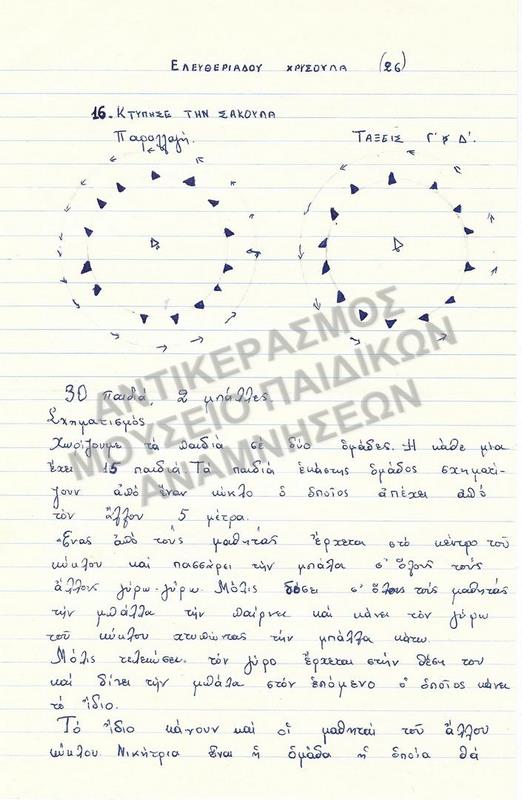 ΕΛΕΥΘΕΡΙΑΔΟΥ ΧΡΥΣΟΥΛΑ (26)
16. ΚΤΥΠΗΣΕ ΤΗΝ ΣΑΚΟΥΛΑ
Παραλλαγή. ΤΑΞΕΙΣ Γ' & Δ'.
ΑΝΤΙΚΕΡΑΣΜΟΣ
ΜΟΥΣΕΙΟ ΠΑΙΔΙΚΩΝ
ΑΝΑΜΝΗΣΕΩΝ
30 παιδιά, 2 μπάλλες
Σχηματισμός
Χωρίζουμε τα παιδιά σε δύο ομάδες. Η κάθε μία
έχει 15 παιδιά Τα παιδιά εκάστης ομάδος σχηματί-
ζουν από έναν κύκλο ὁ ὁποῖος απέχει από
τὸν ἄλλον 5 μέτρα.
Ἕνας ἀπό τούς μαθητάς ἔρχεται στὸ κέντρο τοῦ
κύκλου καὶ πασσάρει τὴν μπάλα σ' ὅλους τοὺς
ἄλλους γύρω-γύρω. Μόλις δώσει σ' ὅλους τούς μαθητάς
τὴν μπάλλα τὴν παίρνει καὶ κάνει τὸν γύρω
τοῦ κύκλου χτυπώντας τὴν μπάλλα κάτω.
Μόλις τελειώσει τὸν γύρο ἔρχεται στὴν θέση του
καὶ δίνει τὴν μπάλα στὸν ἑπόμενο ὁ ὁποῖος κάνει
τὸ ἴδιο.
Τὸ ἴδιο κάνουν καὶ οἱ μαθηταὶ τοῦ ἄλλου
κύκλου. Νικήτρια εἶναι ἡ ὁμάδα ἡ ὁποία θά